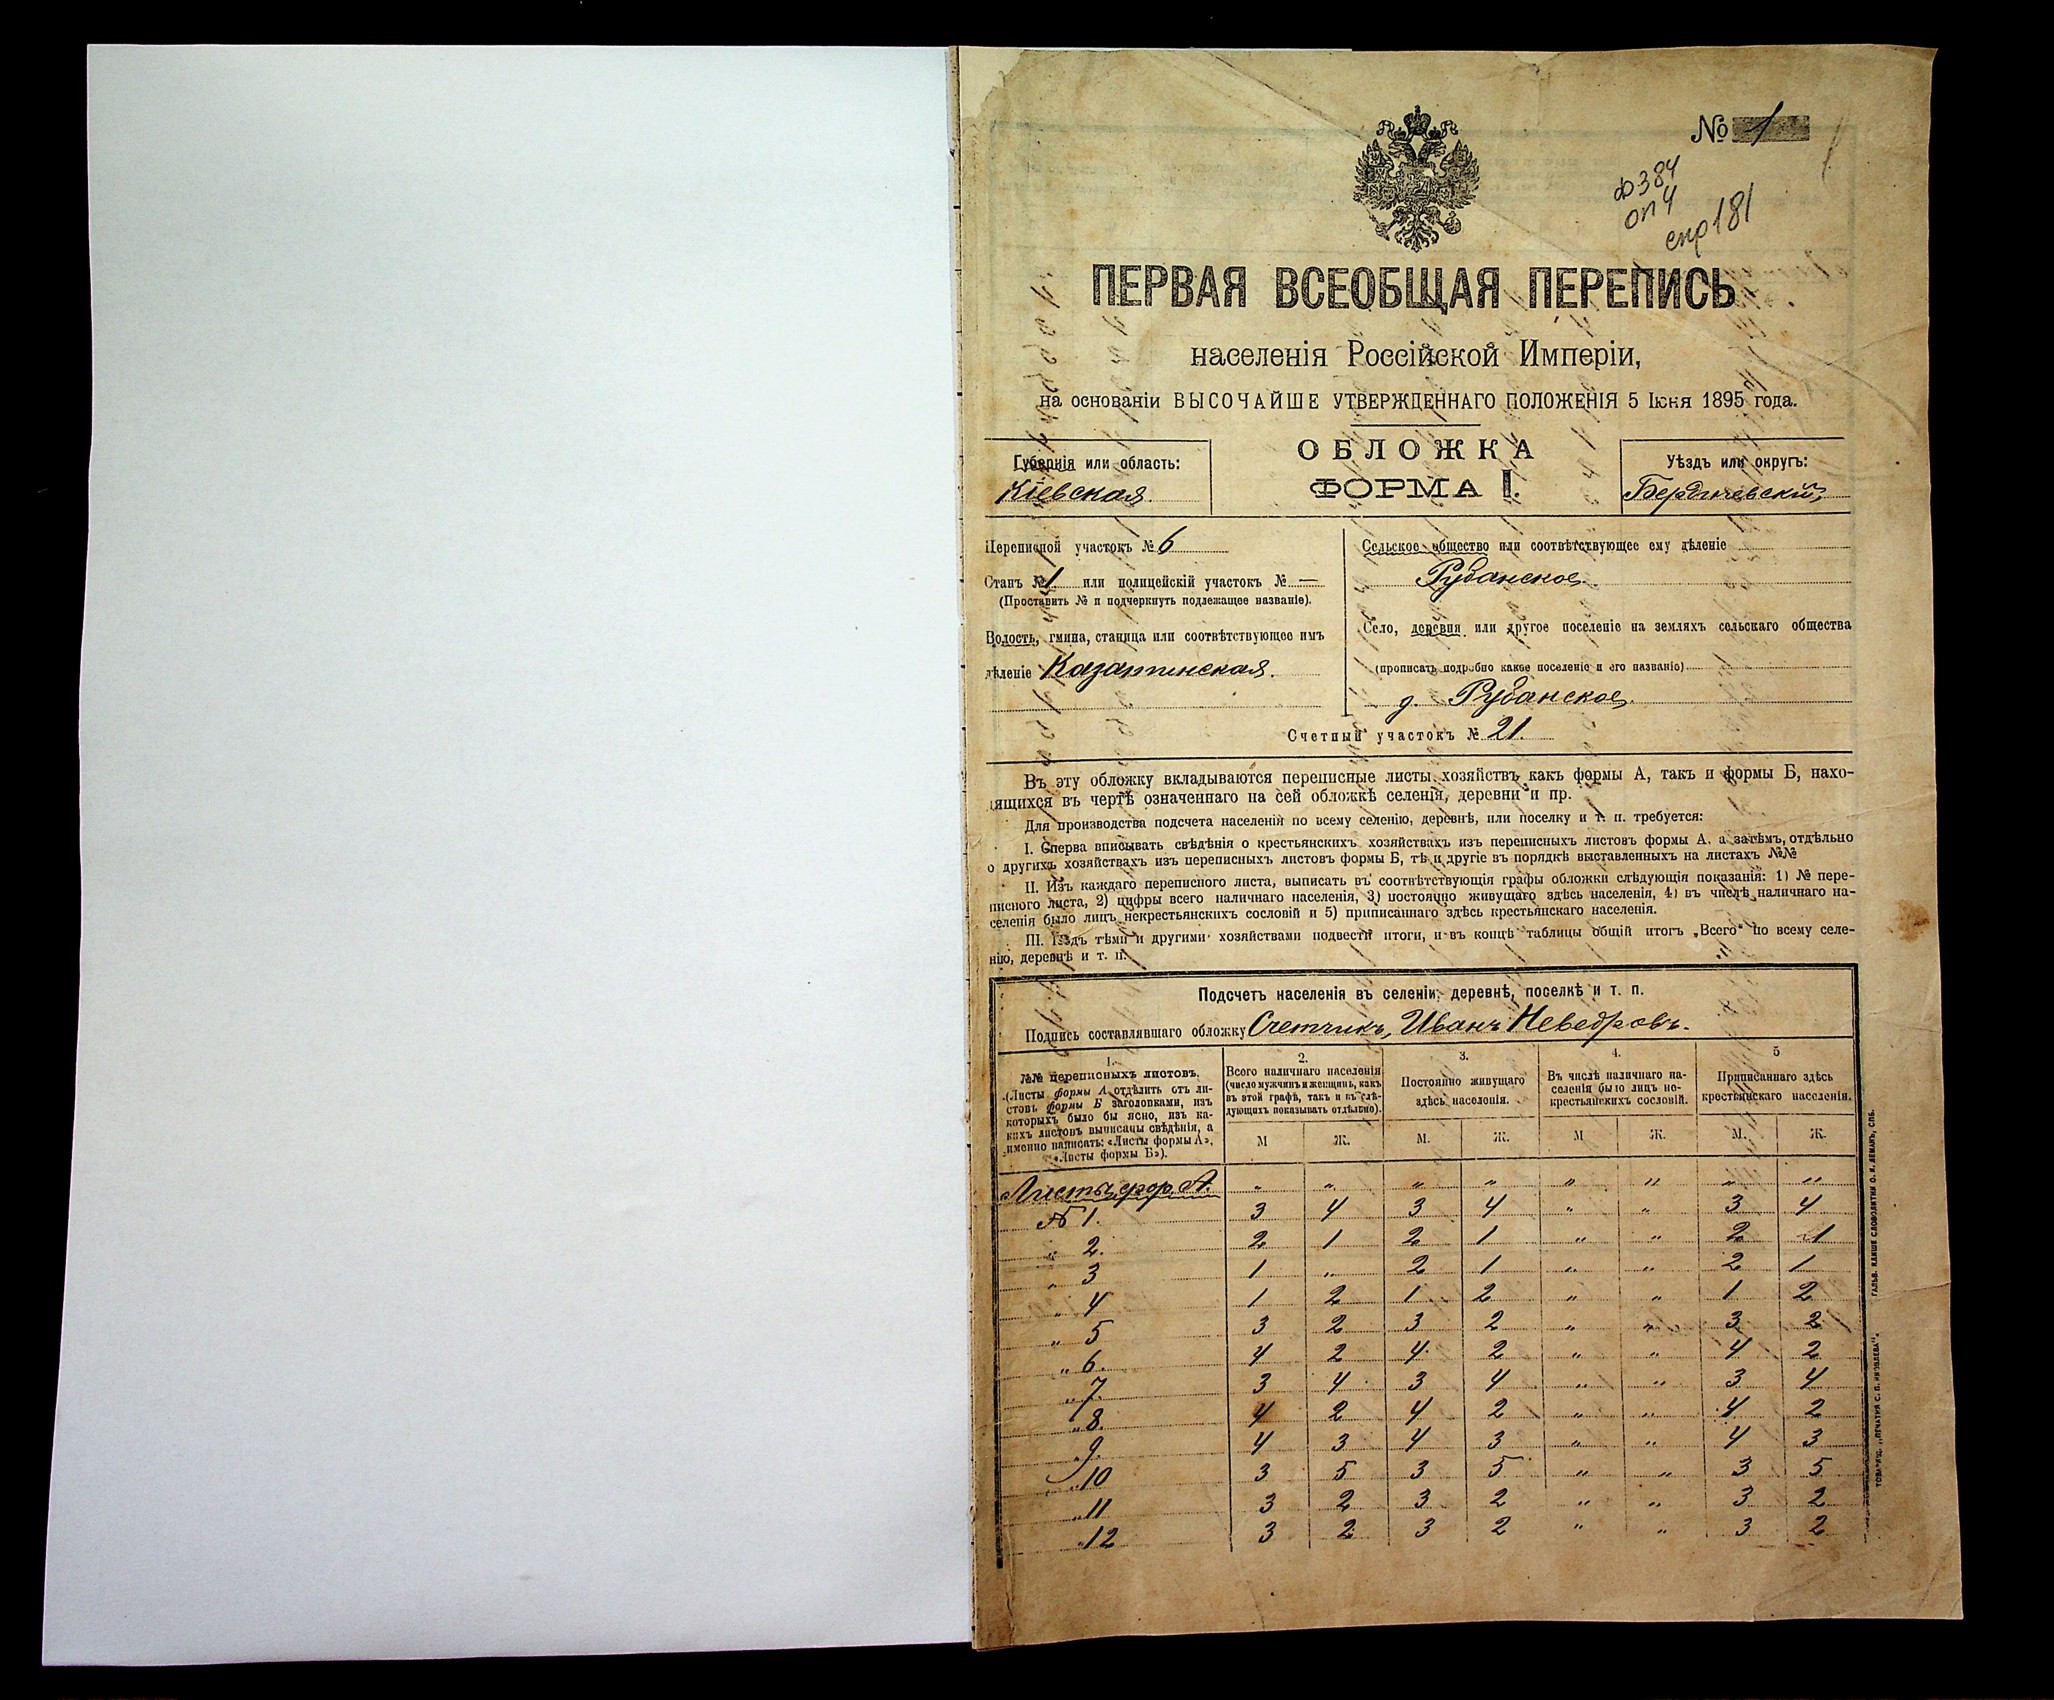 № 1
ф 384
оп 4
спр 181
ПЕРВАЯ ВСЕОБЩАЯ ПЕРЕПИСЬ
населенія Россійской Имперіи,
на основаніи ВЫСОЧАЙШЕ УТВЕРЖДЕННАГО ПОЛОЖЕНІЯ 5 Іюня 1895 года.
Губернія или область:
Кіевская.
ОБЛОЖКА
ФОРМА I.
Уѣздъ или округъ:
Бердичевскій,
Переписной участокъ № 6
Станъ № 1 или полицейскій участокъ № —
(Проставить № и подчеркнуть подлежащее названіе).
Волость, гмина, станица или соотвѣтствующее имъ
дѣленіе Казатинская.
Сельское общество или соотвѣтствующее ему дѣленіе
Рубанское.
Село, деревня или другое поселеніе на земляхъ сельскаго общества
(прописать подробно какое поселеніе и его названіе)
д. Рубанское.
Счетный участокъ № 21.
Въ эту обложку вкладываются переписные листы хозяйствъ какъ формы А, такъ и формы Б, нахо-
дящихся въ чертѣ означеннаго на сей обложкѣ селенія, деревни и пр.
Для производства подсчета населенія по всему селенію, деревнѣ, или поселку и т. п. требуется:
I. Сперва вписывать свѣдѣнія о крестьянскихъ хозяйствахъ изъ переписныхъ листовъ формы А, а затѣмъ, отдѣльно
о другихъ хозяйствахъ изъ переписныхъ листовъ формы Б, тѣ и другіе въ порядкѣ выставленныхъ на листахъ №№
II. Изъ каждаго переписного листа, выписать въ соотвѣтствующія графы обложки слѣдующія показанія: 1) № пере-
писного листа, 2) цифры всего наличнаго населенія, 3) постоянно живущаго здѣсь населенія, 4) въ числѣ наличнаго на-
селенія было лицъ некрестьянскихъ сословій и 5) приписаннаго здѣсь крестьянскаго населенія.
III. Надъ тѣми и другими хозяйствами подвести итоги, и въ концѣ таблицы общій итогъ „Всего“ по всему селе-
нію, деревнѣ и т. п.
Подсчетъ населенія въ селеніи, деревнѣ, поселкѣ и т. п.
Подпись составлявшаго обложку Счетчикъ, Иванъ Неведровъ.
1.
№№ переписныхъ листовъ.
(Листы формы А отдѣлить отъ ли-
стовъ формы Б заголовками, изъ
которыхъ было бы ясно, изъ ка-
кихъ листовъ выписаны свѣдѣнія, а
именно написать: «Листы формы А»,
«Листы формы Б»).
2.
Всего наличнаго населенія
(число мужчинъ и женщинъ, какъ
въ этой графѣ, такъ и въ слѣ-
дующихъ показывать отдѣльно).
3.
Постоянно живущаго
здѣсь населенія.
4.
Въ числѣ наличнаго на-
селенія было лицъ не-
крестьянскихъ сословій.
5
Приписаннаго здѣсь
крестьянскаго населенія.
М Ж. М. Ж. М Ж. М. Ж.
Листы фор. А. „ „ „ „ „ „ „ „
№ 1. 3 4 3 4 „ „ 3 4
„ 2. 2 1 2 1 „ „ 2 1
„ 3 1 „ 2 1 „ „ 2 1
„ 4 1 2 1 2 „ „ 1 2
„ 5 3 2 3 2 „ „ 3 2
„ 6. 4 2 4 2 „ „ 4 2
„ 7. 3 4 3 4 „ „ 3 4
„ 8. 4 2 4 2 „ „ 4 2
„ 9. 4 3 4 3 „ „ 4 3
„ 10 3 5 3 5 „ „ 3 5
„ 11 3 2 3 2 „ „ 3 2
„ 12 3 2 3 2 „ „ 3 2
ГАЛЬВ. КЛИШЕ СЛОВОЛИТНИ О. И. ЛЕМАНЪ, СПБ.
ТОВАРИЩ. „ПЕЧАТНЯ С. П. ЯКОВЛЕВА“.